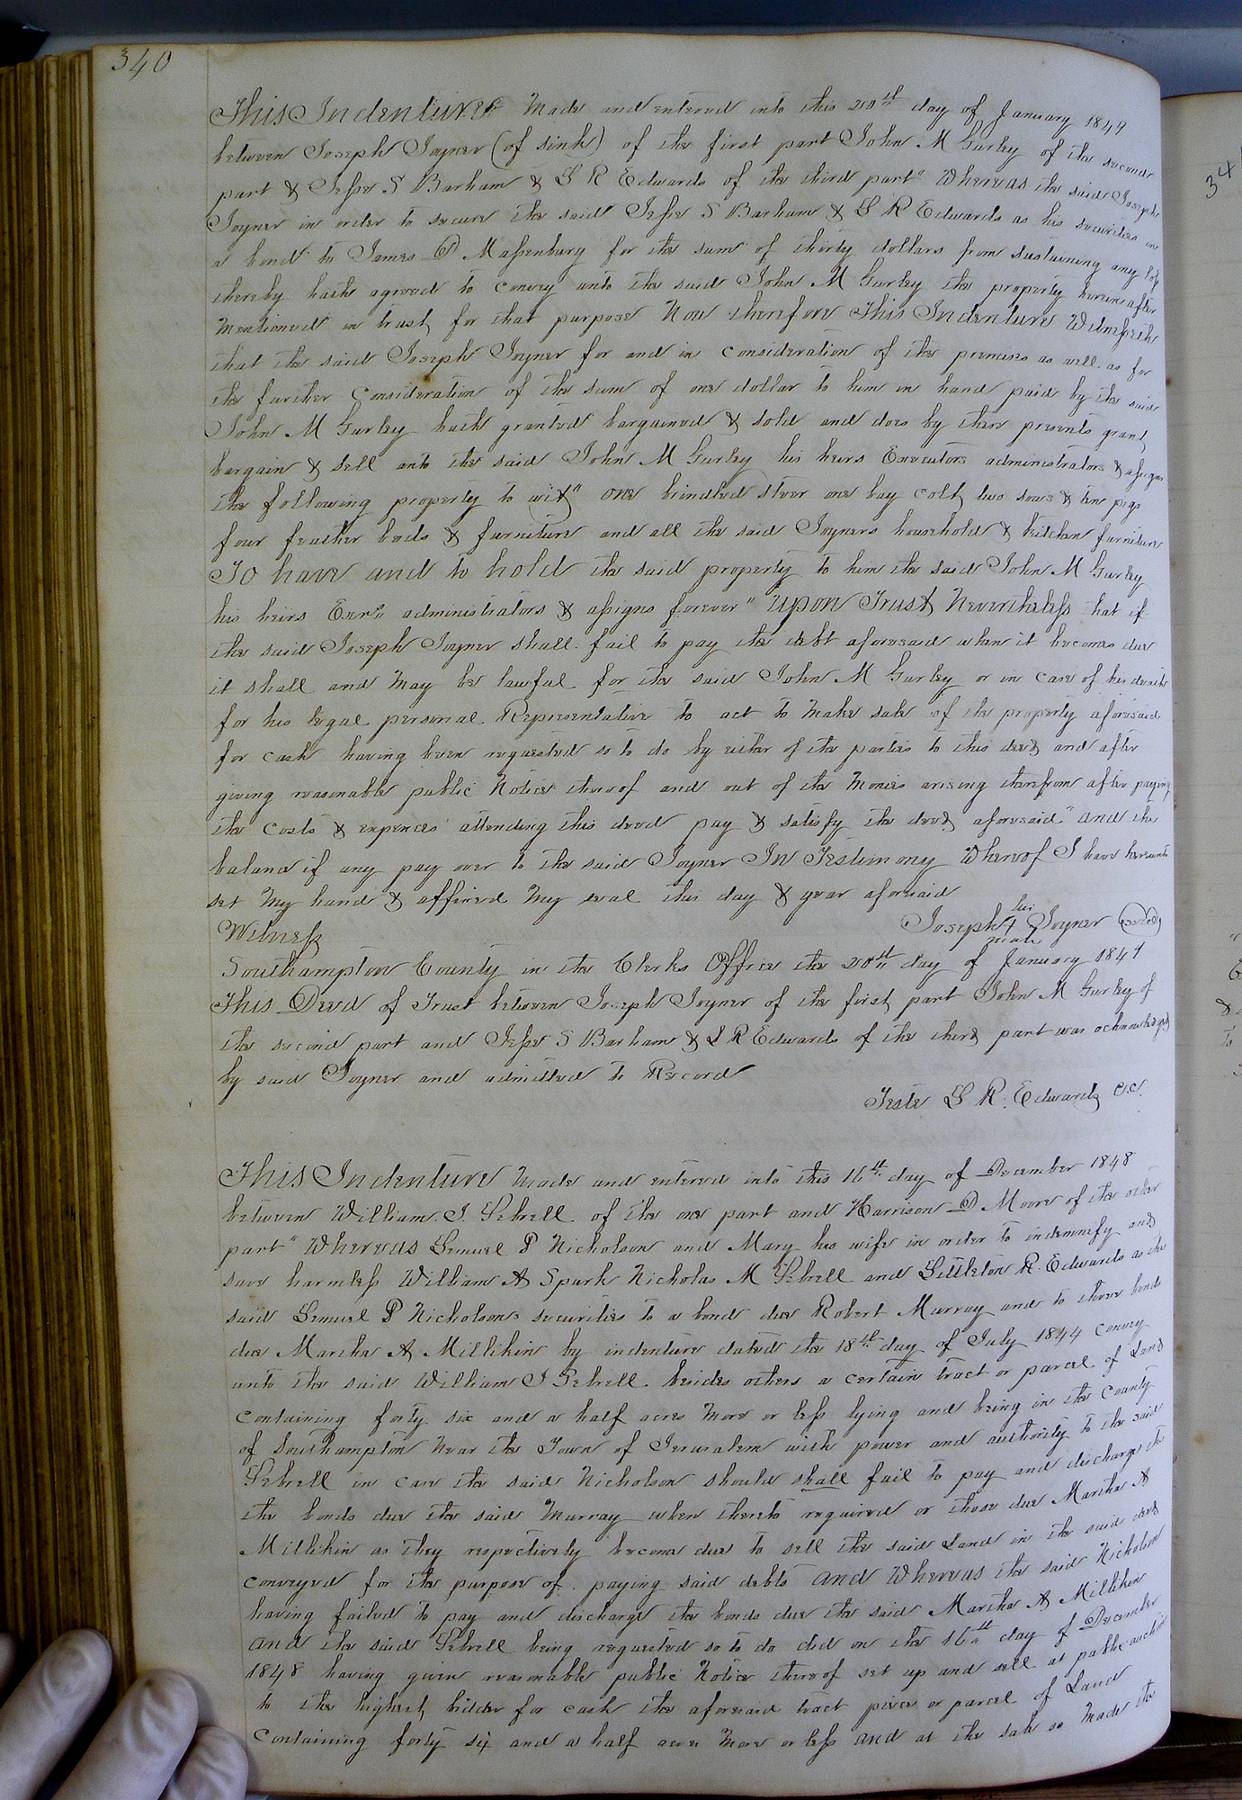 340
This Indenture Made and entered into this 20th day of January 1849
between Joseph Joyner (of sink) of the first part John M Gurley of the second
part & Jesse S Barham & L R Edwards of the third part" Whereas the said Joseph
Joyner in order to secure the said Jesse S Barham & L R Edwards as his securities in
a bond to James D Massenburg for the sum of thirty dollars from sustaining any loss
thereby hath agreed to convey unto the said John M Gurley the property hereinafter
Mentioned in trust for that purpose Now therefore This Indenture Witnesseth
that the said Joseph Joyner for and in consideration of the premises as well as for
the further Consideration of the sum of one dollar to him in hand paid by the said
John M Gurley hath granted bargained & sold and does by these presents grant
bargain & sell unto the said John M Gurley his heirs Executors administrators & assigns
the following property to wit" one brindled steer one bay colt two sows & ten pigs
four feather beds & furniture and all the said Joyners household & kitchen furniture
To have and to hold the said property to him the said John M Gurley
his heirs Exers administrators & assigns forever" Upon Trust Nevertheless that if
the said Joseph Joyner shall fail to pay the debt aforesaid when it becomes due
it shall and May be lawful for the said John M Gurley or in case of his death
for his legal personal Representative to act to Make sale of the property aforesaid
for cash having been requested so to do by either of the parties to this deed and after
giving reasonable public Notice thereof and out of the Monies arising therefrom after paying
the costs & expences attending this deed pay & satisfy the deed aforesaid" and the
balance if any pay over to the said Joyner In Testimony Whereof I have hereunto
set My hand & affixed My seal this day & year aforesaid
his
Joseph + Joyner (seal)
mark
Witness
Southampton County in the Clerks Office the 20th day of January 1849
This Deed of Trust between Joseph Joyner of the first part John M Gurley of
the second part and Jesse S Barham & L R Edwards of the third part was acknowledged
by said Joyner and admitted to Record
Teste L R. Edwards c.c.
This Indenture Made and entered into this 16th day of December 1848
between William J. Sebrell of the one part and Harrison D Moore of the other
part" Whereas Lemuel P Nicholson and Mary his wife in order to indemnify and
save harmless William A Spark Nicholas M Sebrell and Littleton R. Edwards as the
said Lemuel P Nicholsons securities to a bond due Robert Murray and to three bonds
due Martha A Millikin by indenture dated the 18th day of July 1844 convey
unto the said William J Sebrell besides others a certain tract or parcel of Land
containing forty six and a half acres More or less lying and being in the County
of Southampton Near the Town of Jerusalem with power and authority to the said
Sebrell in case the said Nicholson should shall fail to pay and discharge the
the bonds due the said Murray when thereto required or those due Martha A
Millikin as they respectively become due to sell the said Land in the said deed
conveyed for the purpose of paying said debts and Whereas the said Nicholson
having failed to pay and discharge the bonds due the said Martha A Millikin
and the said Sebrell being requested so to do did on the 16th day of December
1848 having given reasonable public Notice thereof set up and sell at public auction
to the highest bidder for cash the aforesaid tract piece or parcel of Land
Containing forty six and a half acres More or less and at the sale so Made the